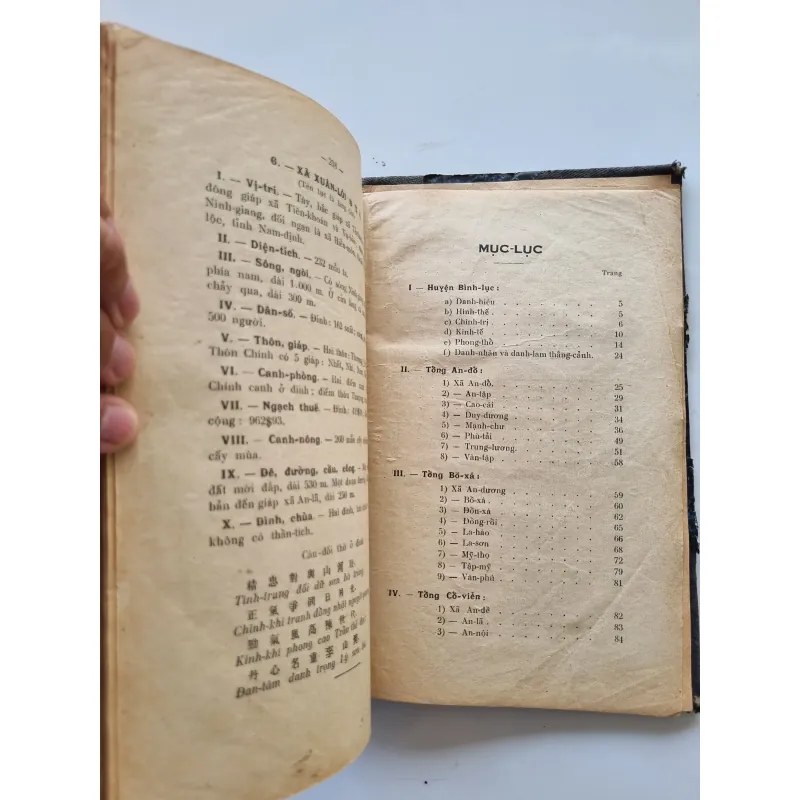 6. — XÃ XUÂN-LÔI
I. — Vị-trí. — Tây, bắc giáp xã
đông giáp xã Tiên-khoán và
Ninh-giang, đối ngạn là xã
lộc, tỉnh Nam-định.
II. — Diện-tích. — 232 mẫu ta.
III. — Sông, ngòi. — Có sông
phía nam, dài 1.000 m. Ở
chảy qua, dài 300 m.
IV. — Dân-số. — Đinh: 162 suất;
500 người.
V. — Thôn, giáp. — Hai thôn:
Thôn Chinh có 5 giáp: Nhất, Nhì,
VI. — Canh-phòng. — Hai điếm
Chinh canh ở đình; điếm thôn
VII. — Ngạch thuế. — Đinh:
cộng: 962$93.
VIII. — Canh-nông. — 260 mẫu
cấy mùa.
IX. — Đê, đường, cầu, cống. —
đất mới đắp, dài 530 m. Một đoạn
bản đến giáp xã An-lã, dài 250 m.
X. — Đình, chùa. — Hai đình,
không có thần-tích.
Câu-đối thờ ở đình
精忠對與山河
Tinh-trung đối dữ sơn hà
正氣爭同日月
Chính-khí tranh đồng nhật nguyệt
勁氣風高陳
Kính-khí phong cao Trần
丹心名重李
Đan-tâm danh trọng Lý
MỤC-LỤC
Trang
I — Huyện Bình-lục:
a) Danh-hiệu 5
b) Hình-thế 5
c) Chính-trị 6
d) Kinh-tế 10
e) Phong-thổ 14
f) Danh-nhân và danh-lam thắng-cảnh. 24
II. — Tổng An-đổ:
1) Xã An-đổ. 25
2) — An-tập 29
3) — Cao-cái 31
4) — Duy-dương 34
5) — Mạnh-chư 36
6) — Phù-tải 49
7) — Trung-lương. 51
8) — Văn-tập 58
III. — Tổng Bồ-xá:
1) Xã An-dương 59
2) — Bồ-xá. 60
3) — Đôn-xá 62
4) — Đồng-rồi 65
5) — La-hào 66
6) — La-sơn 68
7) — Mỹ-thọ 72
8) — Tập-mỹ 79
9) — Văn-phú 81
IV. — Tổng Cổ-viễn:
1) Xã An-đề 82
2) — An-lã 83
3) — An-nội 84